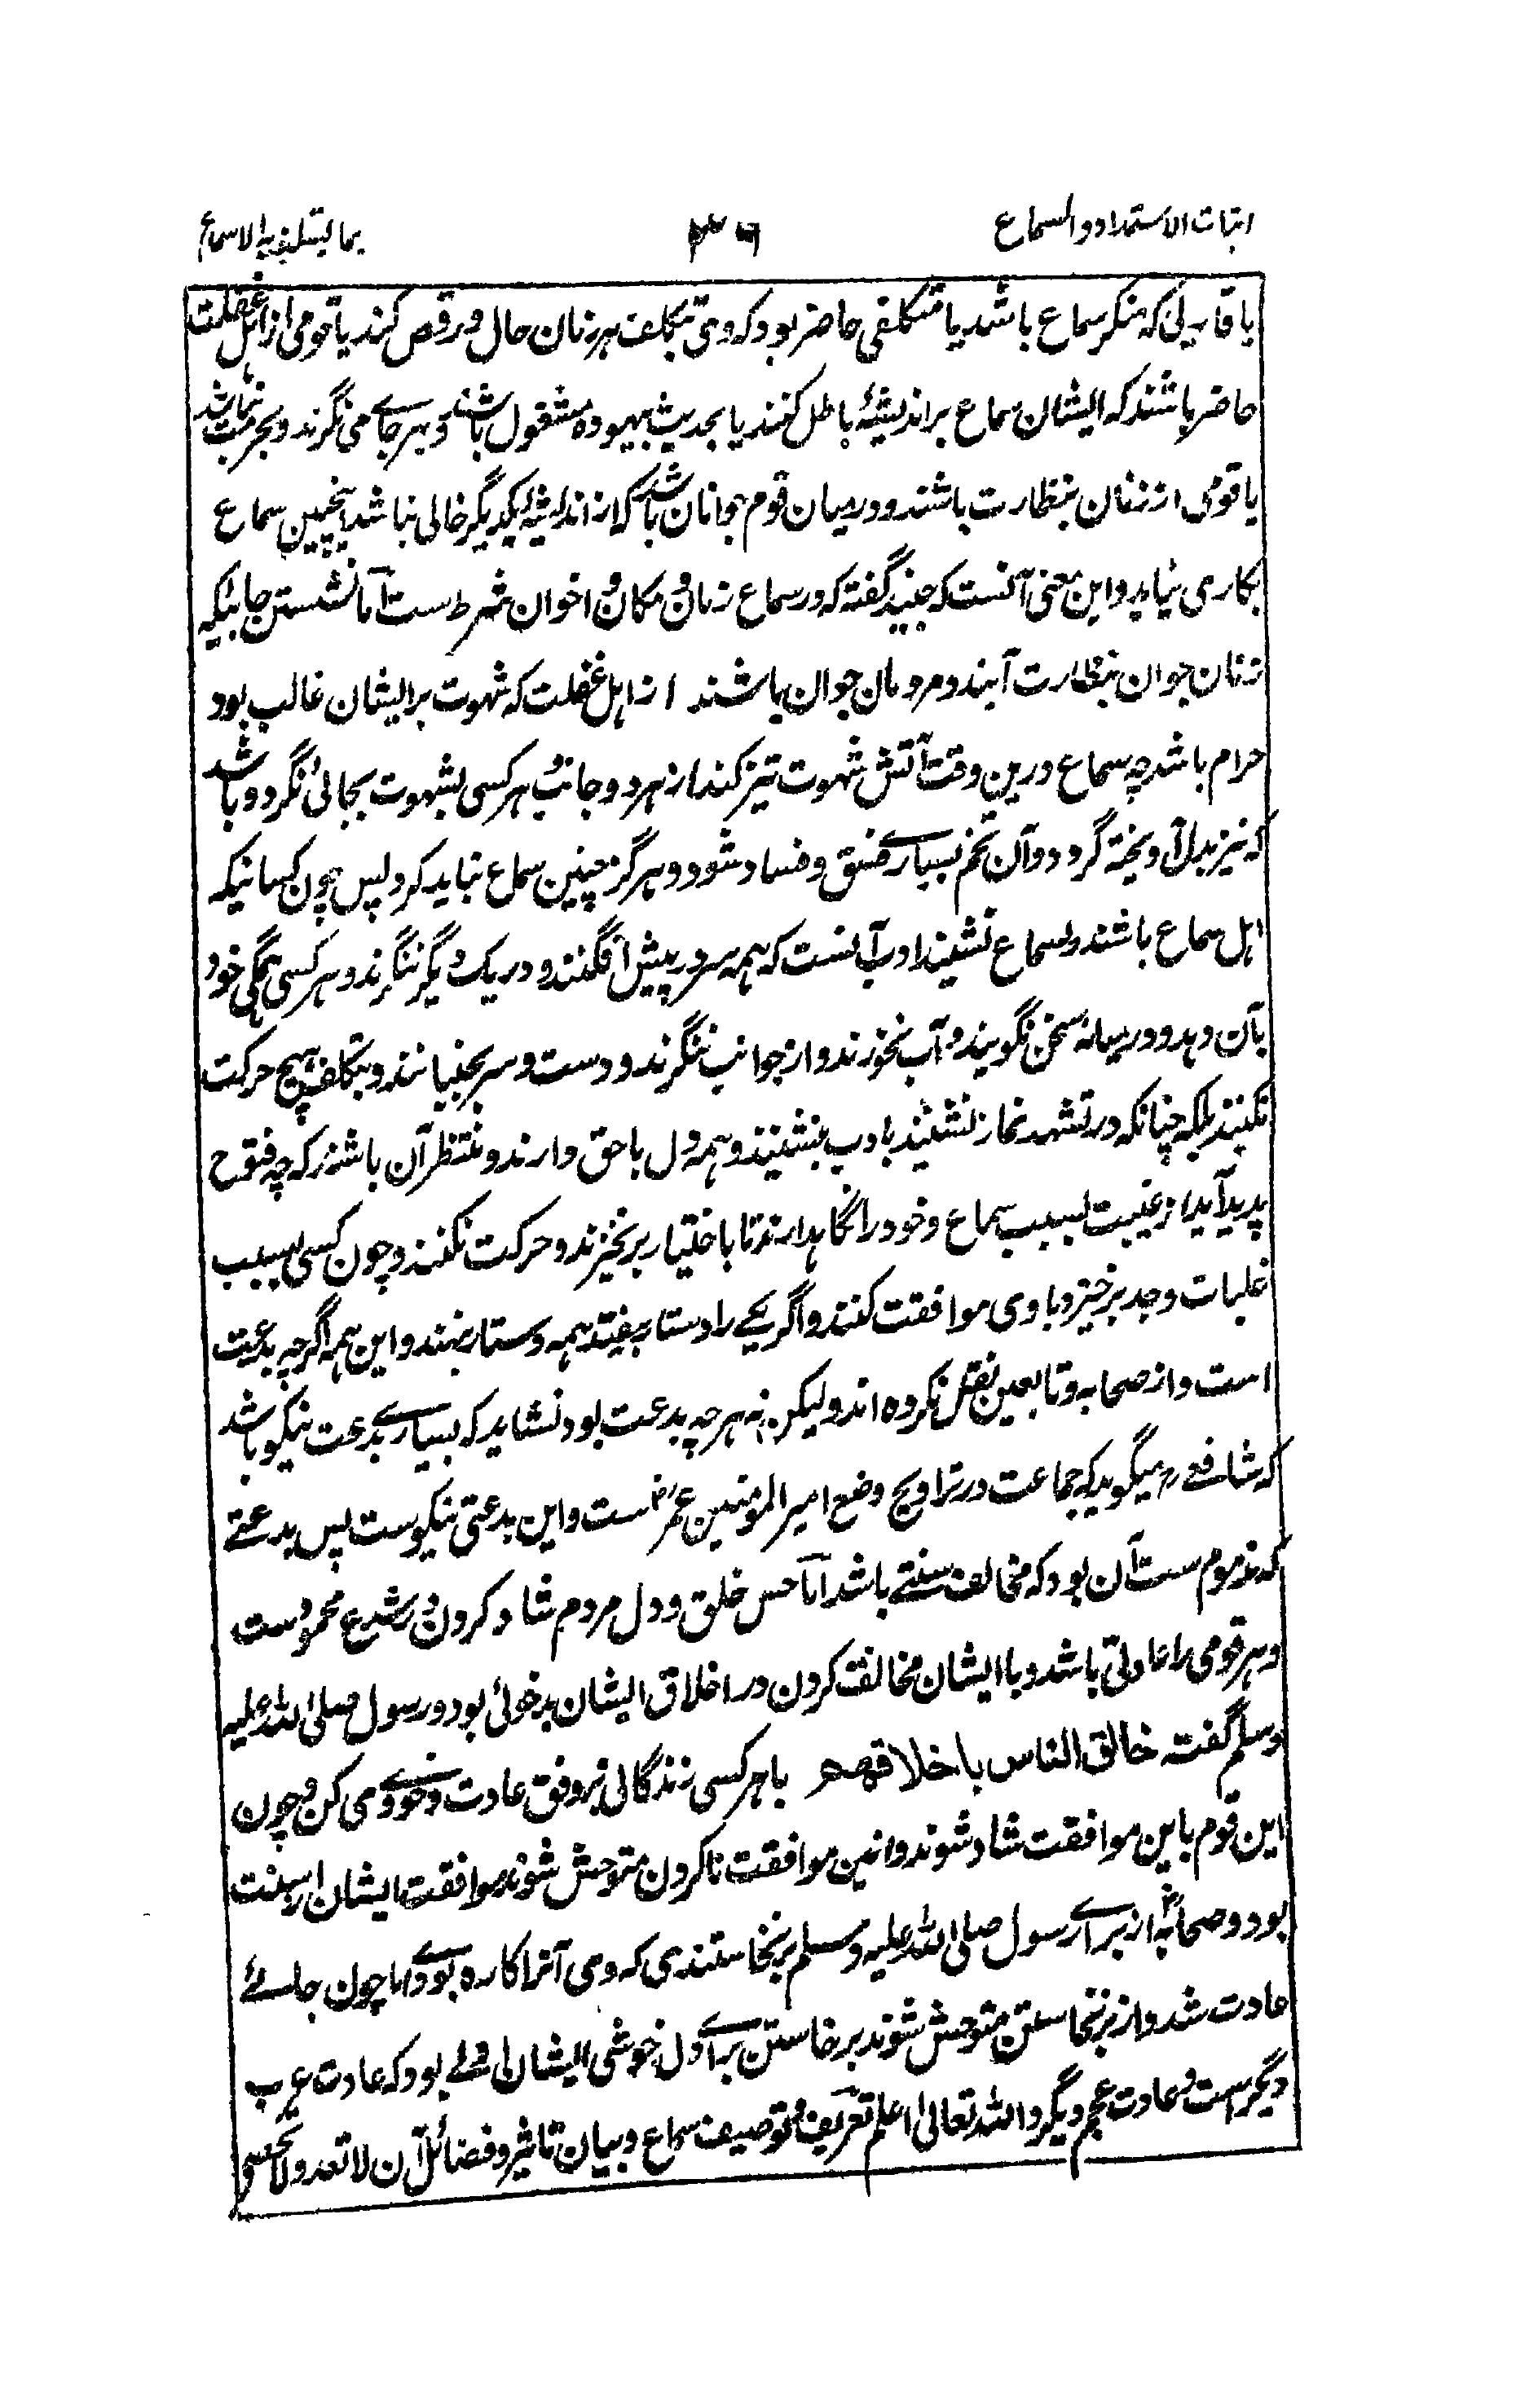 اثبات الاستمداد والسماع ۳۶ بما يستلذ به الاسماع
یا قارئی که منکر سماع باشد یا متکلفی حاضر بود که وی بتکلف هر زمان حال و رقص کند یا قومی از اهل غفلت
حاضر باشند که ایشان سماع بر اندیشهٔ باطل کنند یا بحدیث بیهوده مشغول باشند و بهر جای می نگرند و بحرمت نباشند
یا قومی از زنان بنظارت باشند و در میان قوم جوانان باشد که از اندیشهٔ یکدیگر خالی نباشد اینچنین سماع
بکاری نیاید و این معنی آنست که جنید گفته که در سماع زمان و مکان و اخوان شرط ست اما نشستن جائیکه
زنان جوان بنظارت آیند و مردمان جوان باشند از اهل غفلت که شهوت بر ایشان غالب بود
حرام باشد چه سماع درین وقت آتش شهوت تیز کند از هر دو جانب و هر کسی بشهوت بجائی نگرد و باشد
که نیز بدل آویخته گردد و آن تخم بسیارے فسق و فساد شود و هرگز چنین سماع نباید کرد پس چون کسانیکه
اهل سماع باشند و بسماع نشینند ادب آنست که همه سر در پیش افگنند و در یک دیگر ننگرند و هر کسی همگی خود
بآن دهد و در میانه سخن نگویند و آب نخورند و از جوانب ننگرند و دست و سر نجنبانند و بتکلف هیچ حرکت
نکنند بلکه چنانکه در تشهد نماز نشینند بادب بنشینند و همه دل با حق دارند و منتظر آن باشند که چه فتوح
پدید آید از غیبت بسبب سماع و خود را نگاهدارند تا باختیار برنخیزند و حرکت نکنند و چون کسی بسبب
غلبات وجد برخیزد باوی موافقت کنند و اگر یکے را دستار بیفتد همه دستار بنهند و این همه اگر چه بدعت
است و از صحابه و تابعین نقل نکرده اند ولیکن نه هر چه بدعت بود نشاید که بسیارے بدعت نیکو باشد
که شافعے رح میگوید که جماعت در تراویح وضع امیر المومنین عمر رض ست و این بدعتی نیکوست پس بدعتے
که مذموم ست آن بود که مخالف سنتے باشد اما حسن خلق و دل مردم شاد کردن در شرع محمود ست
و هر قومی را عادتی باشد و با ایشان مخالفت کردن در اخلاق ایشان بدخوئی بود و رسول صلی الله علیه
و سلم گفت خالق الناس باخلاقهم با هر کسی زندگانی بر وفق عادت و خوے وی کن و چون
این قوم باین موافقت شاد شوند و ازین موافقت ناکردن متوحش شوند موافقت ایشان از سنت
بود و صحابه رض از برائے رسول صلی الله علیه و سلم برنخاستندی که وی آنرا کاره بودے اما چون جائے
عادت شد و از برنخاستن متوحش شوند برخاستن برائے دل خوشی ایشان اولی بود که عادت عرب
دیگر است و عادت عجم دیگر والله تعالی اعلم تعریف و توصیف سماع و بیان تاثیر و فضائل آن لا تعد ولا تحصی